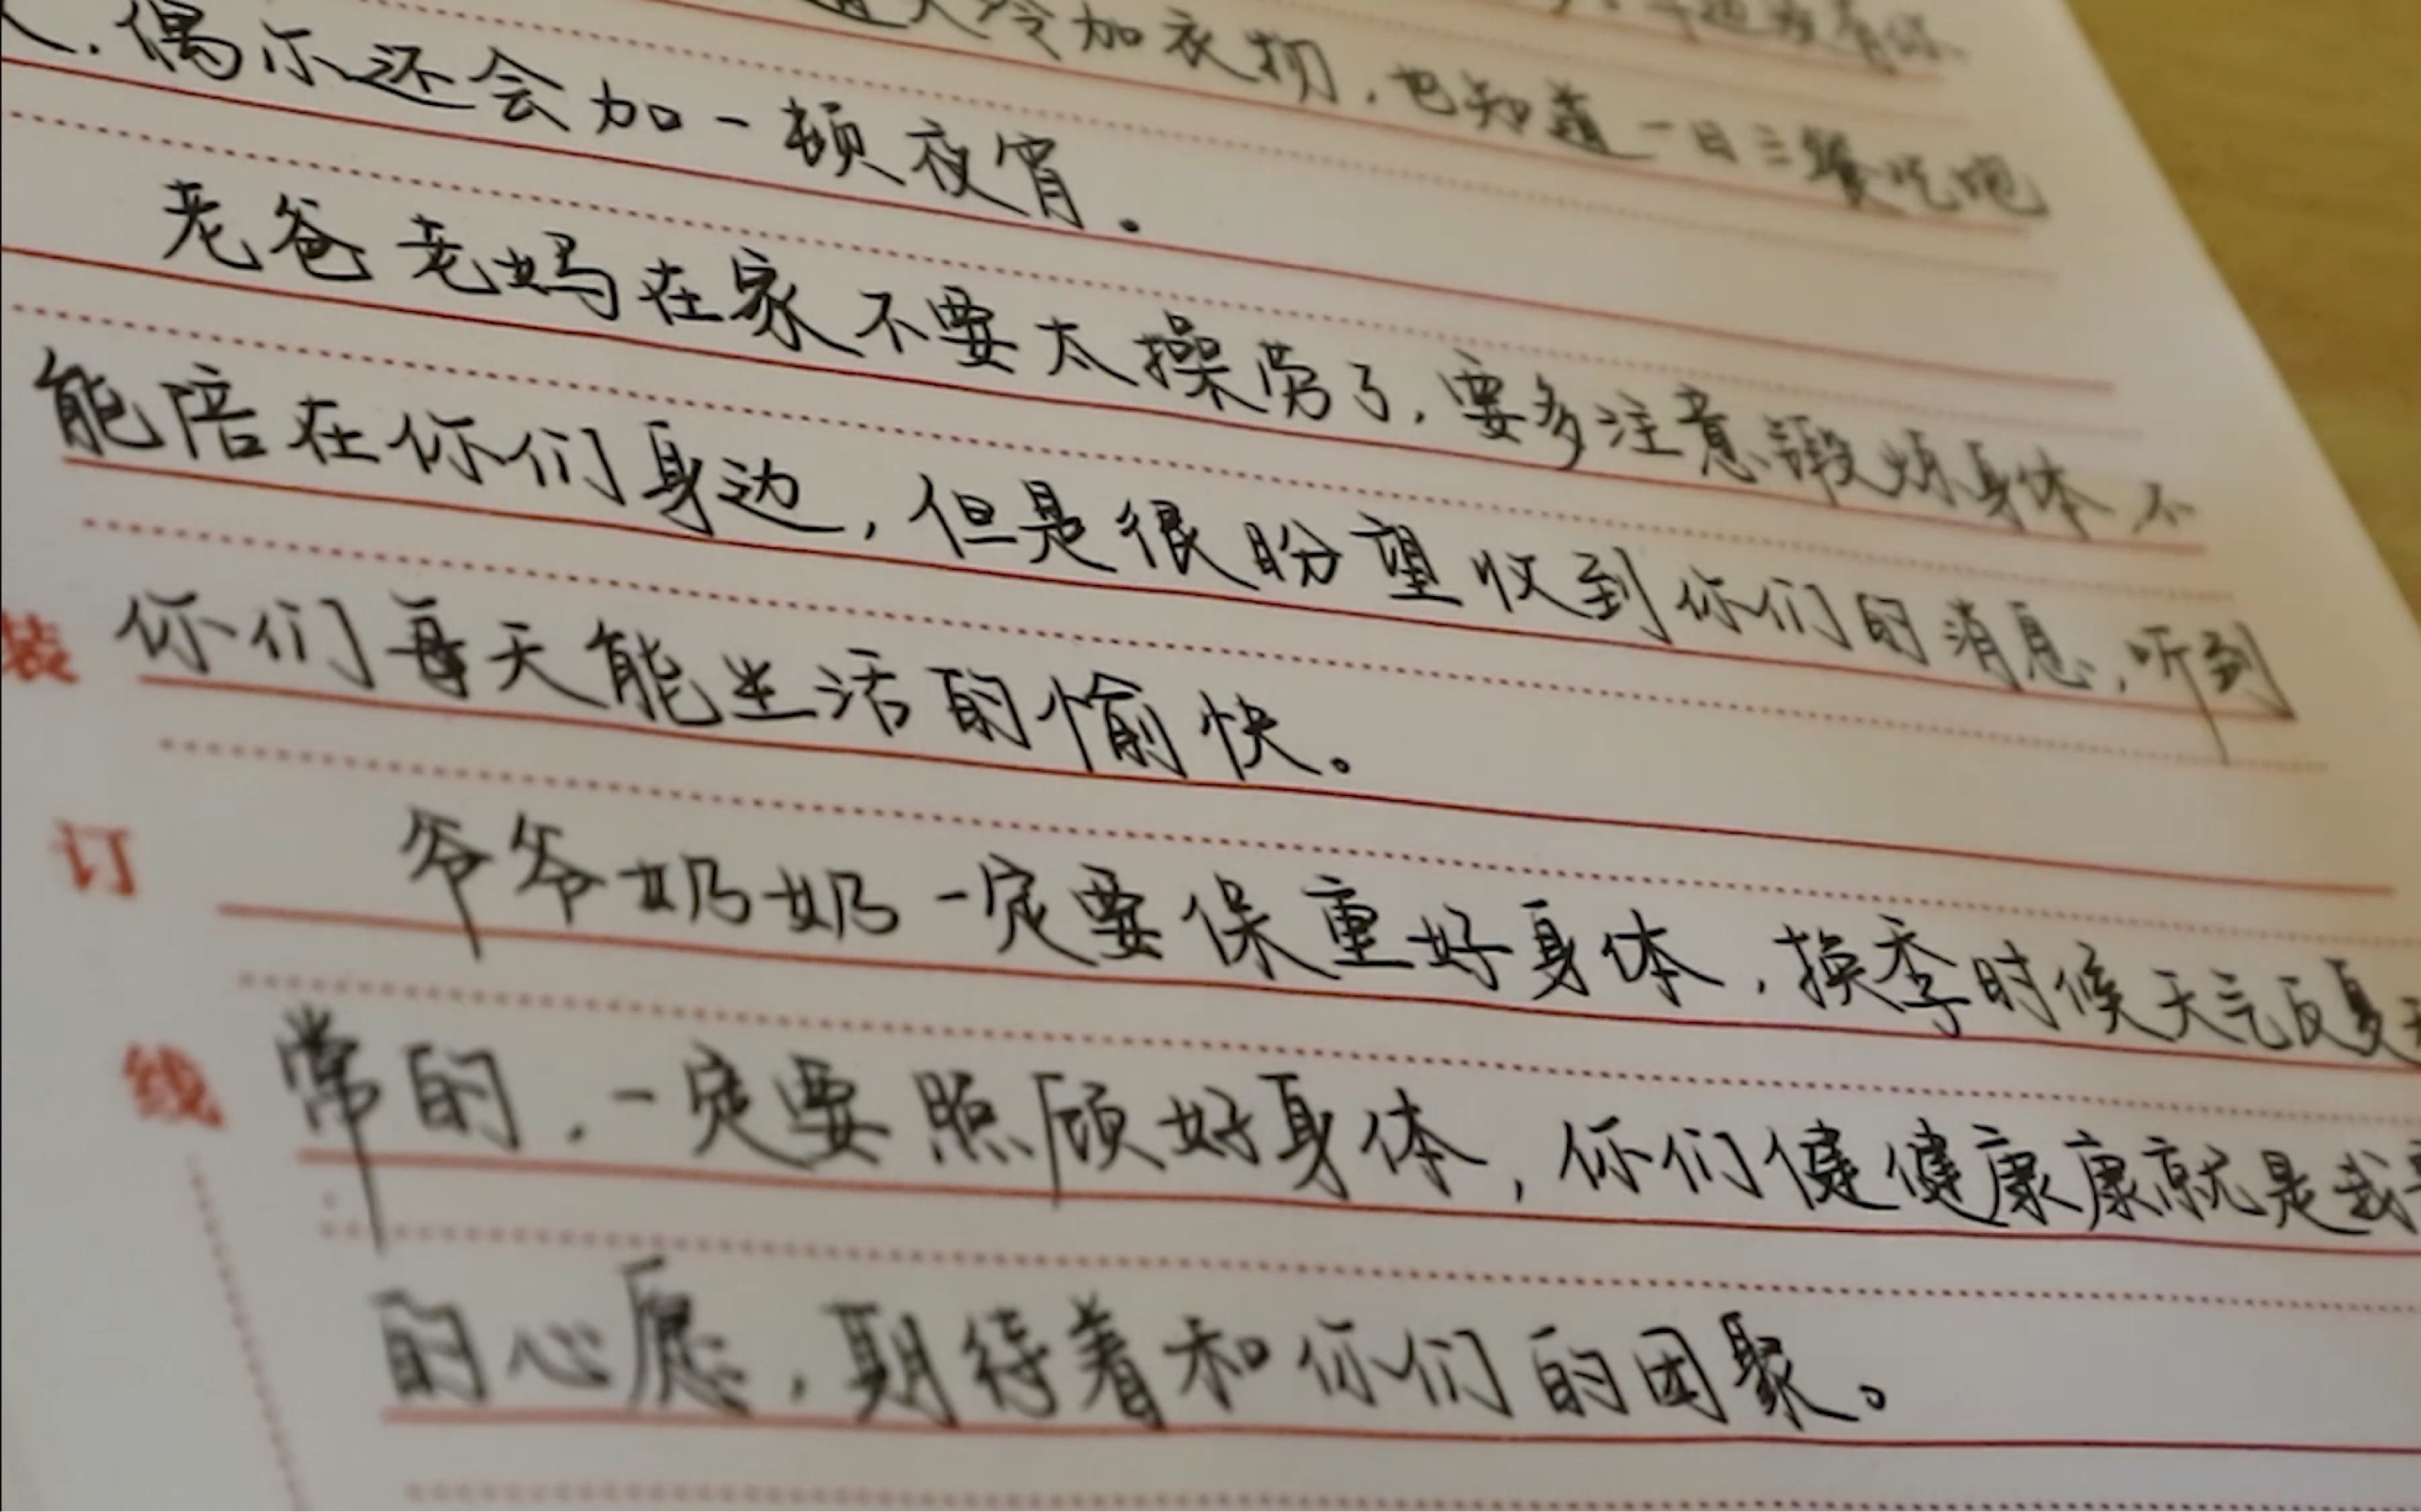 天冷加衣物，也知道一日三餐吃饱
，偶尔还会加一顿夜宵。
老爸老妈在家不要太操劳了，要多注意锻炼身体，不
能陪在你们身边，但是很盼望收到你们的消息，听到
装 你们每天能生活的愉快。
订 爷爷奶奶一定要保重好身体，换季时候天气反复
线 常的，一定要照顾好身体，你们健健康康就是我
的心愿，期待着和你们的团聚。